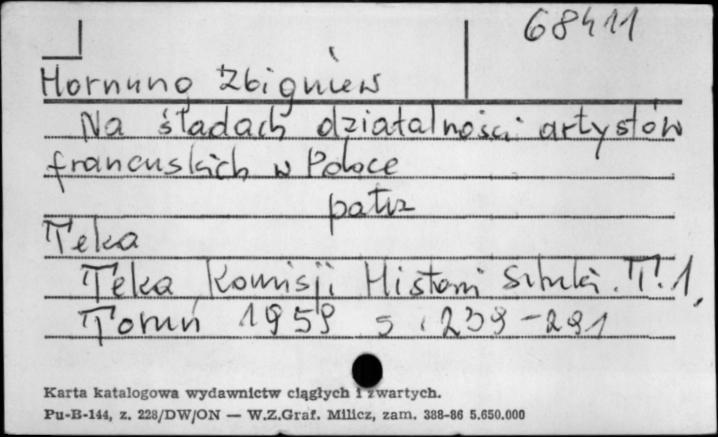 68411
Hornung Zbigniew
Na śladach działalności artystów
francuskich w Polsce
patrz
Teka
Teka Komisji Historii Sztuki. T. 1,
Toruń 1959 s. 239-291
Karta katalogowa wydawnictw ciągłych i zwartych.
Pu-B-144, z. 228/DW/ON — W.Z.Graf. Milicz, zam. 388-86 5.650.000